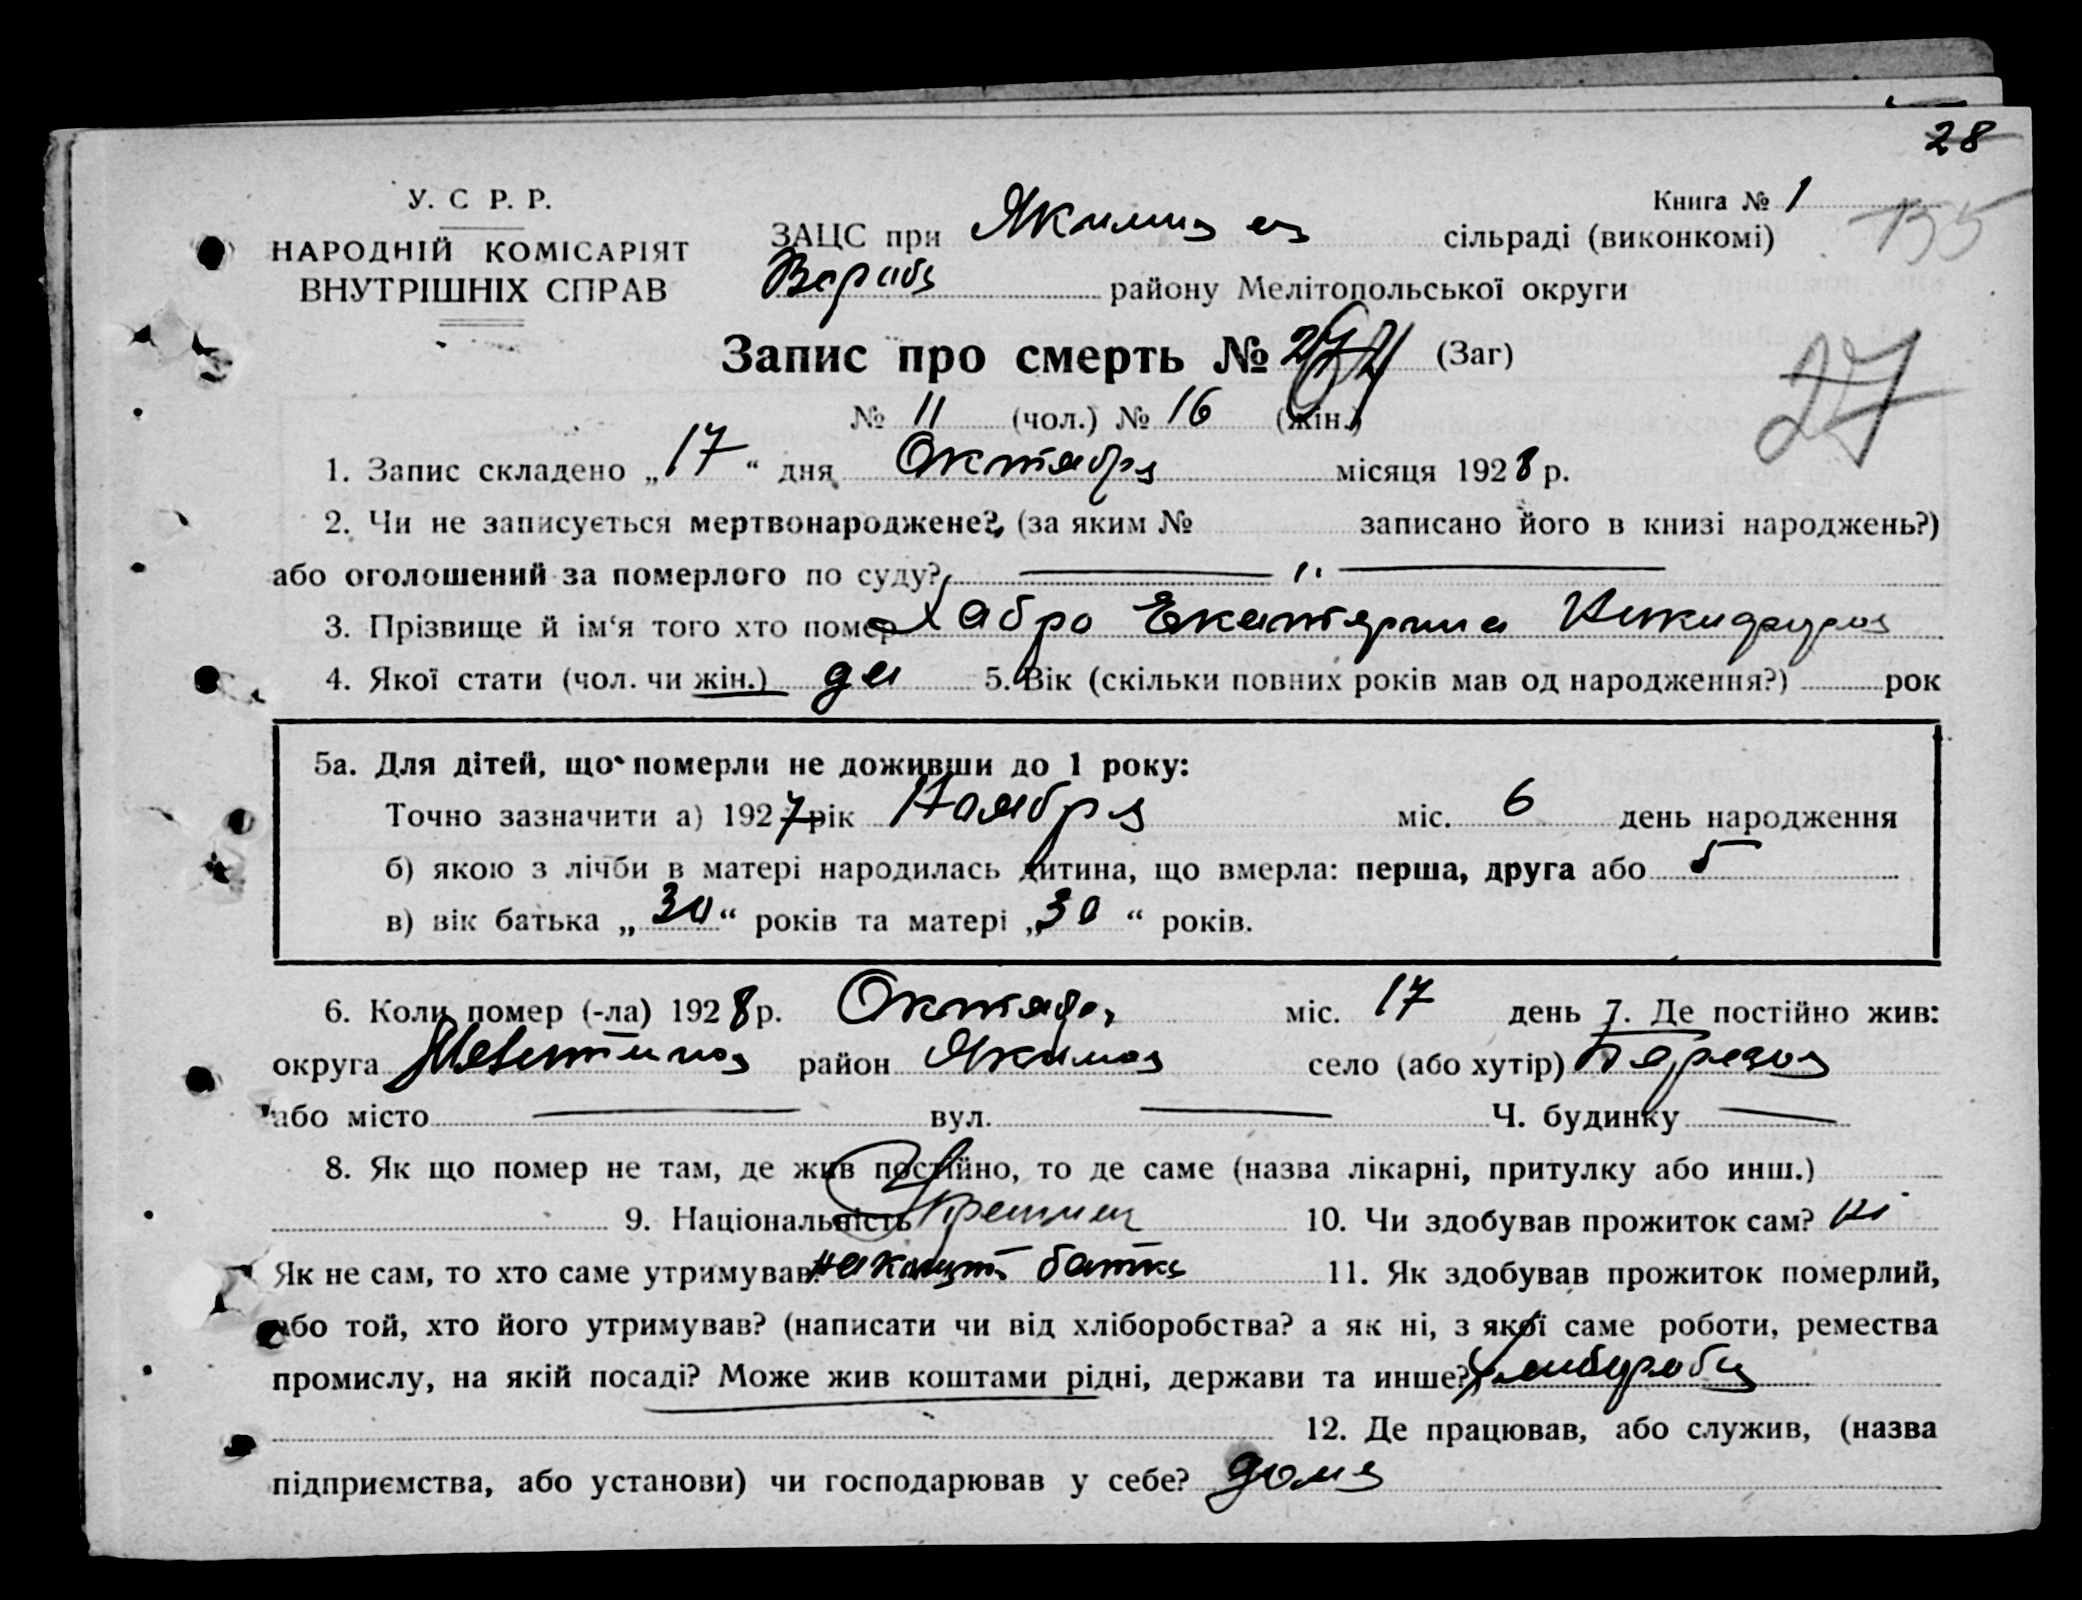 28
У. С. Р. Р.
НАРОДНІЙ КОМІСАРІЯТ
ВНУТРІШНІХ СПРАВ
Книга № 1
155
ЗАЦС при сільраді (виконкомі)
району Мелітопольської округи
Запис про смерть № (Заг)
27
№ 11 (чол.) № 16 (жін.)
1. Запис складено „17“ дня Октября місяця 1928 р.
2. Чи не записується мертвонароджене?, (за яким № записано його в книзі народжень?)
або оголошений за померлого по суду?
3. Прізвище й ім'я того хто помер Хабро Екатярина
4. Якої стати (чол. чи жін.) 5. Вік (скільки повних років мав од народження?) рок
5а. Для дітей, що померли не доживши до 1 року:
Точно зазначити а) 1927 рік Ноября міс. 6 день народження
б) якою з лічби в матері народилась дитина, що вмерла: перша, друга або 5
в) вік батька „30“ років та матері „30“ років.
6. Коли помер (-ла) 1928 р. Октябр міс. 17 день 7. Де постійно жив:
округа район село (або хутір)
або місто вул. Ч. будинку
8. Як що помер не там, де жив постійно, то де саме (назва лікарні, притулку або инш.)
9. Національність 10. Чи здобував прожиток сам? ні
Як не сам, то хто саме утримував? батька 11. Як здобував прожиток померлий,
або той, хто його утримував? (написати чи від хліборобства? а як ні, з якої саме роботи, ремества
промислу, на якій посаді? Може жив коштами рідні, держави та инше?)
12. Де працював, або служив, (назва
підприємства, або установи) чи господарював у себе? дома